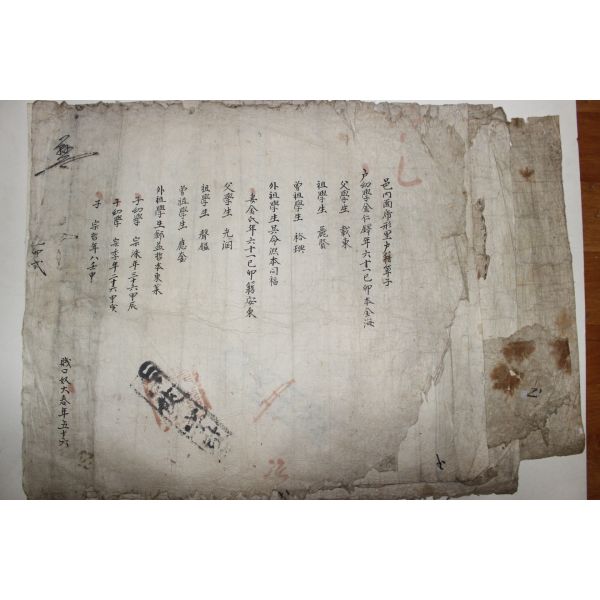 邑內面席形里戶籍單子
戶幼學金仁鐸年六十一己卯本金海
父學生 載東
祖學生 麗賢
曾祖學生 裕璵
外祖學生吳命洪本同福
妻金氏年六十一己卯籍安東
父學生 光潤
祖學生 聲鎰
曾祖學生 應金
外祖學生鄭益哲本東萊
子幼學 宗洙年三十六甲辰
子幼學 宗 年二十六甲寅
子 宗哲年八壬申
賤口奴大春年五十六
乙卯式